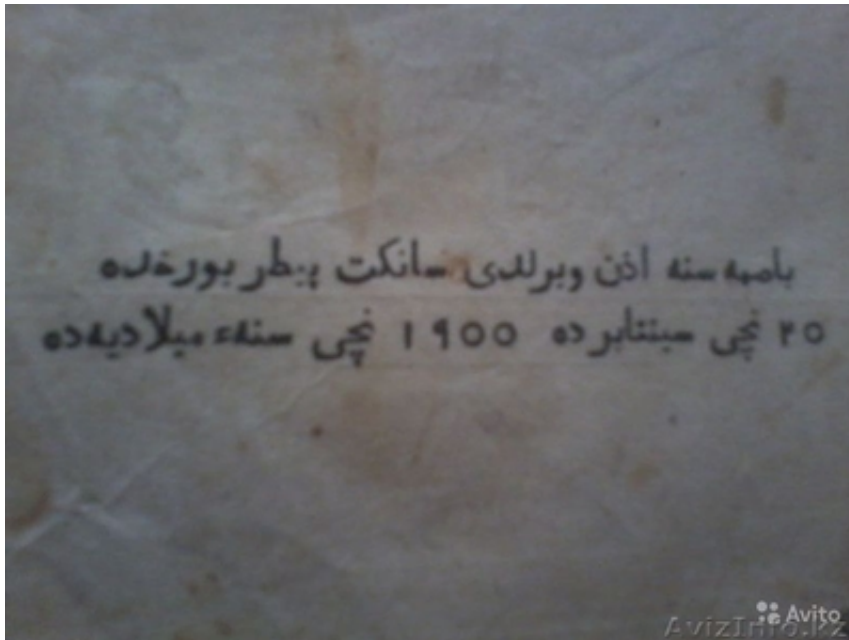 باصمه سنه اذن ويرلدى سانكت پيطر بورغده
٢٥ نچى سينتابر ده ١٩٠٠ نچى سنهء ميلاديه ده
Avito
AvizInfo.kz